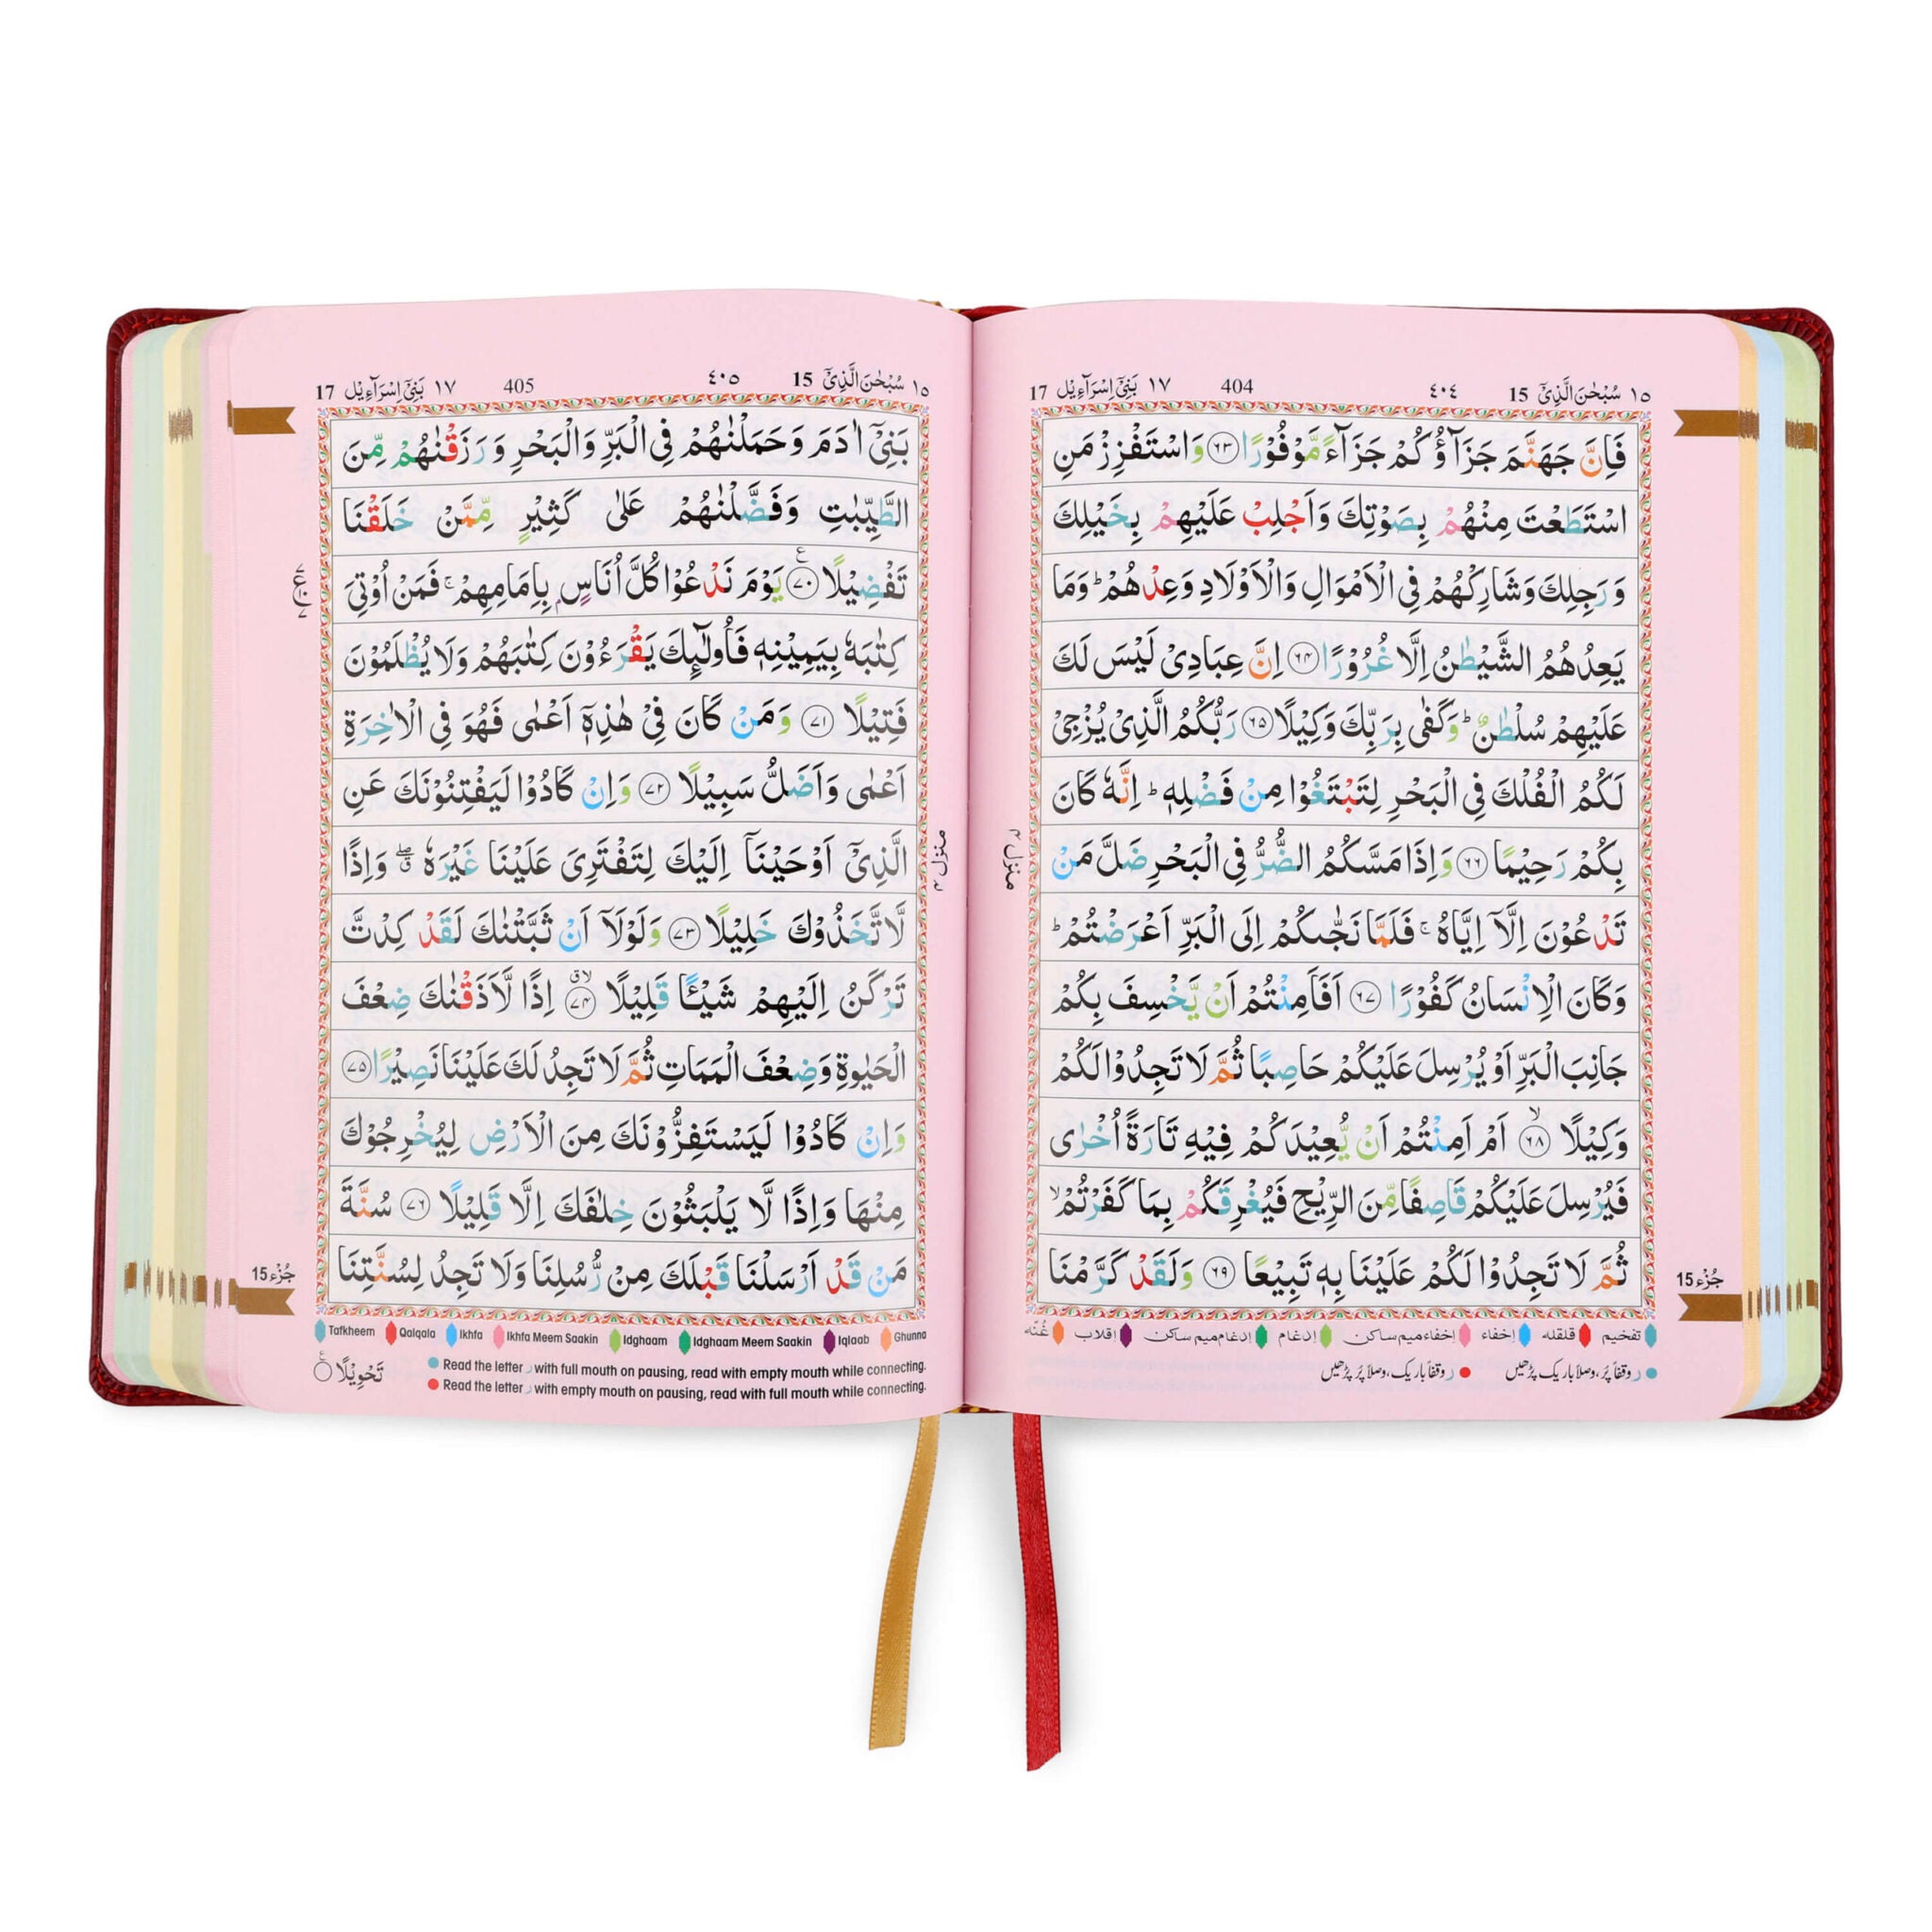 ١٥ سُبْحٰنَ الَّذِيْٓ 15 ٤٠٤ 404 ١٧ بَنِيْٓ اِسْرَآءِيْل 17
فَاِنَّ جَهَنَّمَ جَزَآؤُكُمْ جَزَآءً مَّوْفُوْرًا ۝٦٣ وَاسْتَفْزِزْ مَنِ
اسْتَطَعْتَ مِنْهُمْ بِصَوْتِكَ وَاَجْلِبْ عَلَيْهِمْ بِخَيْلِكَ
وَرَجِلِكَ وَشَارِكْهُمْ فِي الْاَمْوَالِ وَالْاَوْلَادِ وَعِدْهُمْ ؕ وَمَا
يَعِدُهُمُ الشَّيْطٰنُ اِلَّا غُرُوْرًا ۝٦٤ اِنَّ عِبَادِيْ لَيْسَ لَكَ
عَلَيْهِمْ سُلْطٰنٌ ؕ وَكَفٰى بِرَبِّكَ وَكِيْلًا ۝٦٥ رَبُّكُمُ الَّذِيْ يُزْجِيْ
لَكُمُ الْفُلْكَ فِي الْبَحْرِ لِتَبْتَغُوْا مِنْ فَضْلِهٖ ؕ اِنَّهٗ كَانَ
بِكُمْ رَحِيْمًا ۝٦٦ وَاِذَا مَسَّكُمُ الضُّرُّ فِي الْبَحْرِ ضَلَّ مَنْ
تَدْعُوْنَ اِلَّآ اِيَّاهُ ۚ فَلَمَّا نَجّٰىكُمْ اِلَى الْبَرِّ اَعْرَضْتُمْ ؕ
وَكَانَ الْاِنْسَانُ كَفُوْرًا ۝٦٧ اَفَاَمِنْتُمْ اَنْ يَّخْسِفَ بِكُمْ
جَانِبَ الْبَرِّ اَوْ يُرْسِلَ عَلَيْكُمْ حَاصِبًا ثُمَّ لَا تَجِدُوْا لَكُمْ
وَكِيْلًا ۝٦٨ ۙ اَمْ اَمِنْتُمْ اَنْ يُّعِيْدَكُمْ فِيْهِ تَارَةً اُخْرٰى
فَيُرْسِلَ عَلَيْكُمْ قَاصِفًا مِّنَ الرِّيْحِ فَيُغْرِقَكُمْ بِمَا كَفَرْتُمْ ۙ
ثُمَّ لَا تَجِدُوْا لَكُمْ عَلَيْنَا بِهٖ تَبِيْعًا ۝٦٩ وَلَقَدْ كَرَّمْنَا
منزل ٤
جُزْء 15
تفخیم قلقلہ اِخفاء اِخفاءمیم ساکن اِدغام اِدغام میم ساکن اِقلاب غُنّہ
ر وقفاً پُر، وصلاً باریک پڑھیں ر وقفاً باریک، وصلاً پُر پڑھیں
١٥ سُبْحٰنَ الَّذِيْٓ 15 ٤٠٥ 405 ١٧ بَنِيْٓ اِسْرَآءِيْل 17
بَنِيْٓ اٰدَمَ وَحَمَلْنٰهُمْ فِي الْبَرِّ وَالْبَحْرِ وَرَزَقْنٰهُمْ مِّنَ
الطَّيِّبٰتِ وَفَضَّلْنٰهُمْ عَلٰى كَثِيْرٍ مِّمَّنْ خَلَقْنَا
تَفْضِيْلًا ۝٧٠ ع يَوْمَ نَدْعُوْا كُلَّ اُنَاسٍۭ بِاِمَامِهِمْ ۚ فَمَنْ اُوْتِيَ
كِتٰبَهٗ بِيَمِيْنِهٖ فَاُولٰٓئِكَ يَقْرَءُوْنَ كِتٰبَهُمْ وَلَا يُظْلَمُوْنَ
فَتِيْلًا ۝٧١ وَمَنْ كَانَ فِيْ هٰذِهٖٓ اَعْمٰى فَهُوَ فِي الْاٰخِرَةِ
اَعْمٰى وَاَضَلُّ سَبِيْلًا ۝٧٢ وَاِنْ كَادُوْا لَيَفْتِنُوْنَكَ عَنِ
الَّذِيْٓ اَوْحَيْنَآ اِلَيْكَ لِتَفْتَرِيَ عَلَيْنَا غَيْرَهٗ ۖۗ وَاِذًا
لَّاتَّخَذُوْكَ خَلِيْلًا ۝٧٣ وَلَوْلَآ اَنْ ثَبَّتْنٰكَ لَقَدْ كِدْتَّ
تَرْكَنُ اِلَيْهِمْ شَيْئًا قَلِيْلًا ۝٧٤ لاق اِذًا لَّاَذَقْنٰكَ ضِعْفَ
الْحَيٰوةِ وَضِعْفَ الْمَمَاتِ ثُمَّ لَا تَجِدُ لَكَ عَلَيْنَا نَصِيْرًا ۝٧٥
وَاِنْ كَادُوْا لَيَسْتَفِزُّوْنَكَ مِنَ الْاَرْضِ لِيُخْرِجُوْكَ
مِنْهَا وَاِذًا لَّا يَلْبَثُوْنَ خِلٰفَكَ اِلَّا قَلِيْلًا ۝٧٦ سُنَّةَ
مَنْ قَدْ اَرْسَلْنَا قَبْلَكَ مِنْ رُّسُلِنَا وَلَا تَجِدُ لِسُنَّتِنَا
منزل ٤
جُزْء 15
Tafkheem Qalqala Ikhfa Ikhfa Meem Saakin Idghaam Idghaam Meem Saakin Iqlaab Ghunna
Read the letter ر with full mouth on pausing, read with empty mouth while connecting.
Read the letter ر with empty mouth on pausing, read with full mouth while connecting.
تَحْوِيْلًا ۝ ع